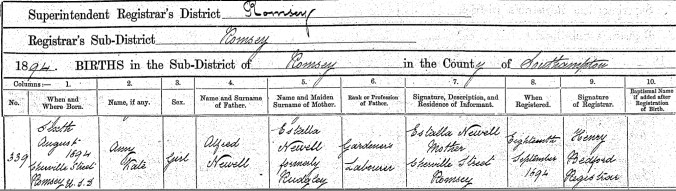 Superintendent Registrar's District Romsey
Registrar's Sub-District Romsey
1894. BIRTHS in the Sub-District of Romsey in the County of Southampton
Columns:— 1. 2. 3. 4. 5. 6. 7. 8. 9. 10.
No. When and Where Born. Name, if any. Sex. Name and Surname of Father. Name and Maiden Surname of Mother. Rank or Profession of Father. Signature, Description, and Residence of Informant. When Registered. Signature of Registrar. Baptismal Name if added after Registration of Birth.
339
Sixth
August
1894
Sherville Street
Romsey U.S.D
Amy
Kate
Girl
Alfred
Newell
Estella
Newell
formerly
Rudgley
Gardener's
Labourer
Estella Newell
Mother
Sherville Street
Romsey
Eighteenth
September
1894
Henry
Bedford
Registrar